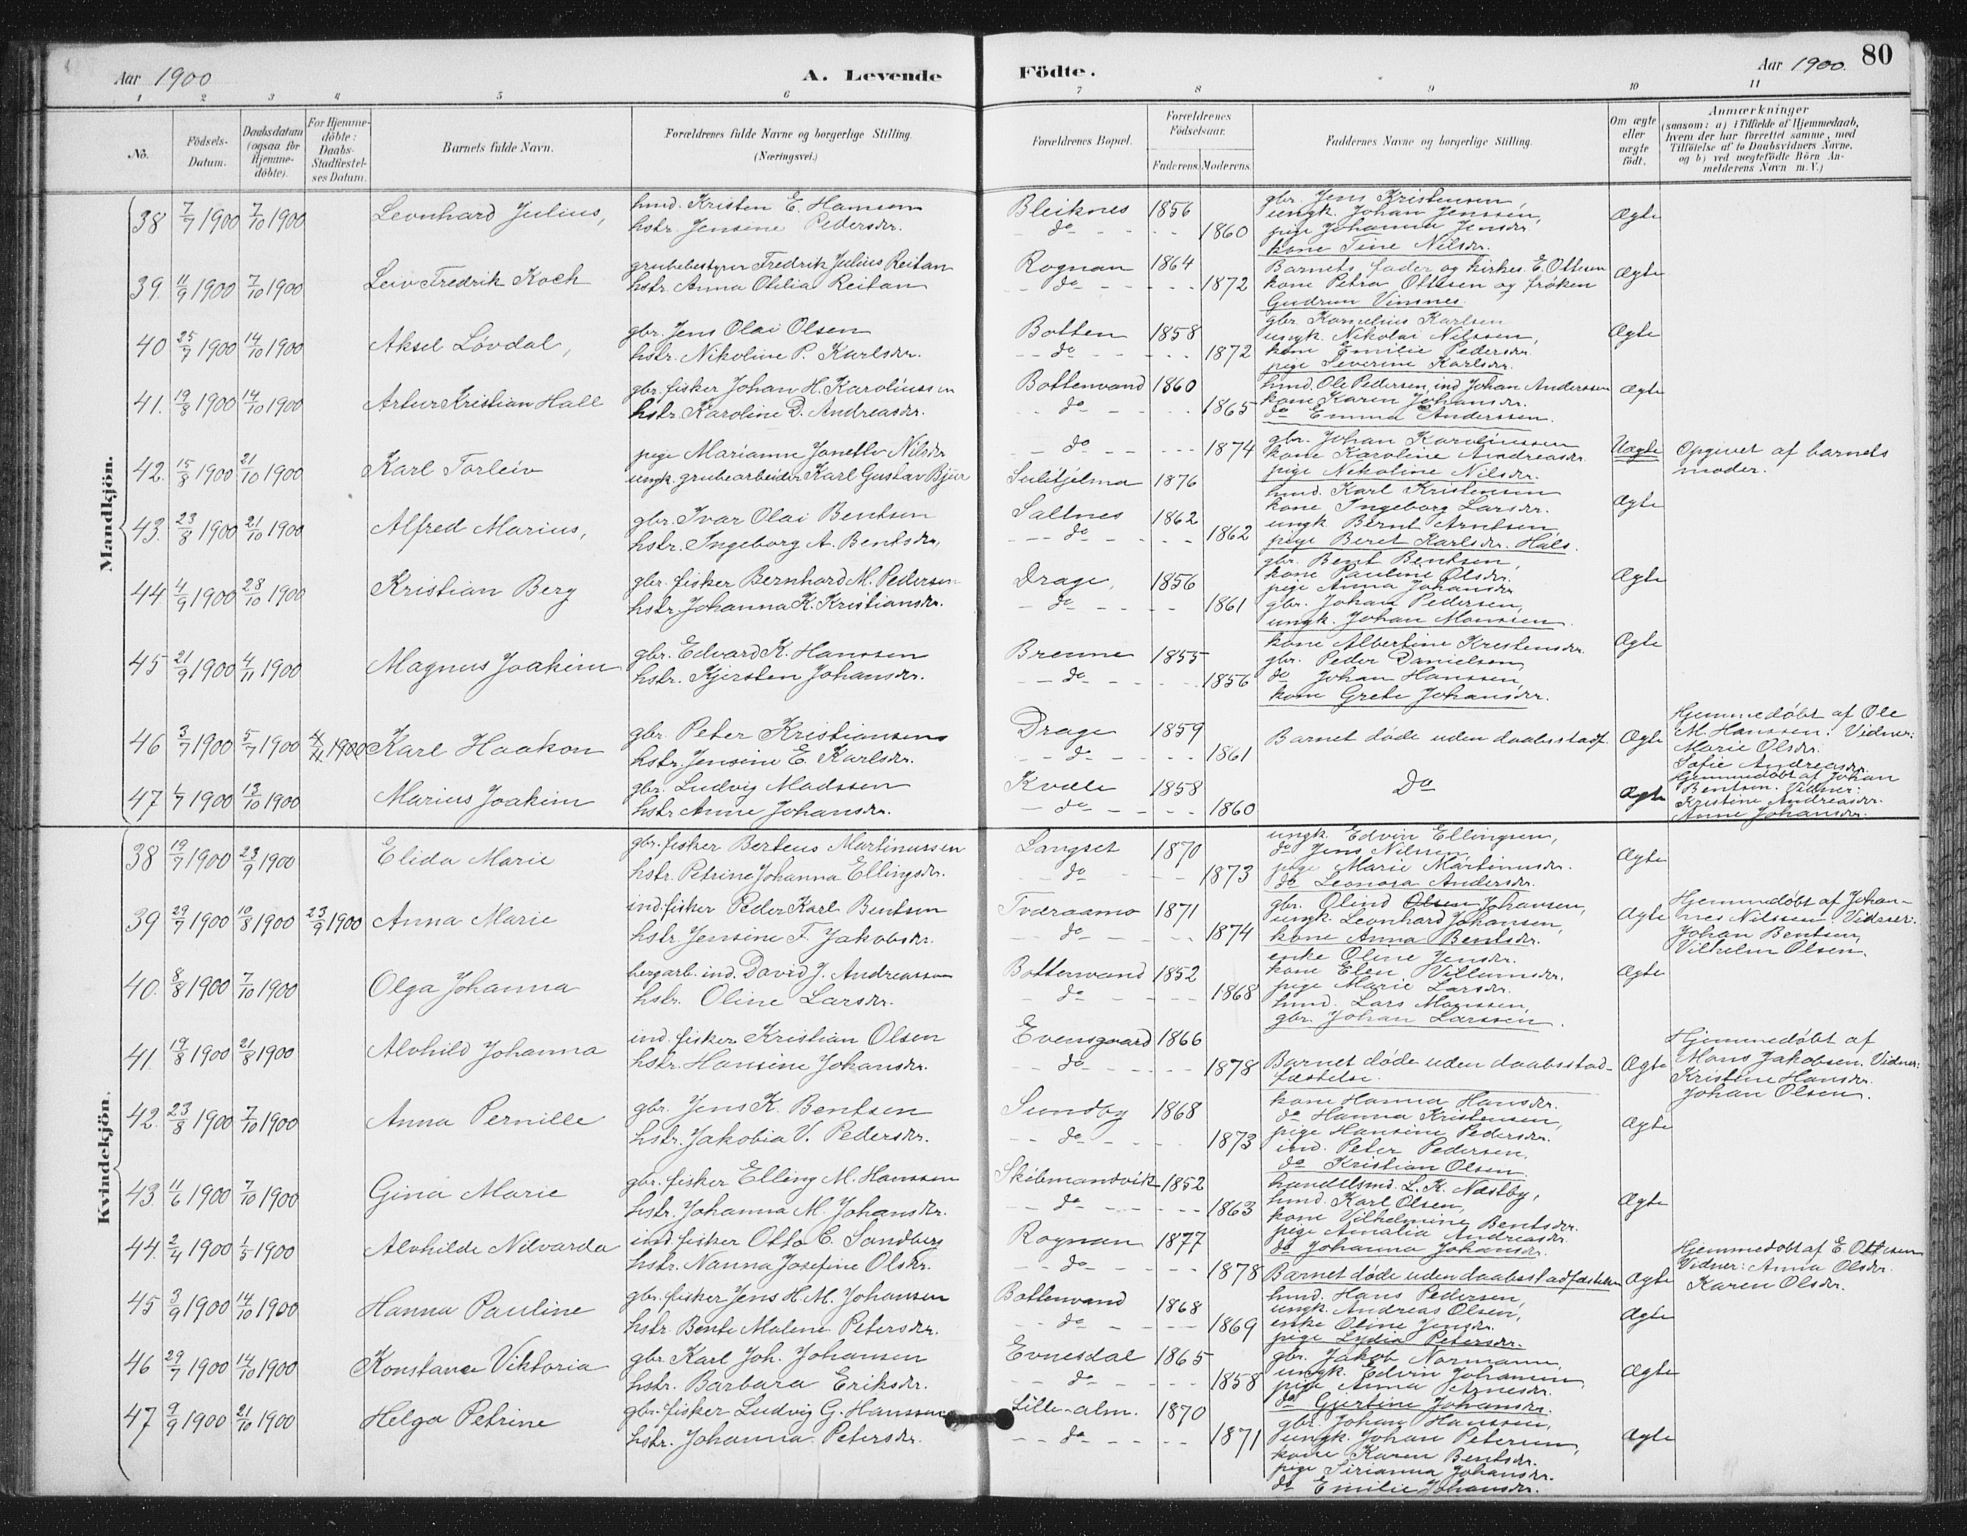 Aar 1900
A. Levende
Födte.
Aar 1900.
80
1 2 3 4 5 6 7 8 9 10 11
No.
Födsels-Datum.
Daabsdatum (ogsaa for Hjemme-döbte).
For Hjemme-döbte: Daabs-Stadfæstel-ses Datum.
Barnets fulde Navn.
Forældrenes fulde Navne og borgerlige Stilling.
(Næringsvei.)
Forældrenes Bopæl.
Forældrenes Födselsaar.
Faderens. Moderens.
Faddernes Navne og borgerlige Stilling.
Om ægte eller uægte födt.
Anmærkninger
(saasom: a) i Tilfælde af Hjemmedaab, hvem der har forrettet samme, med Tilföielse af to Daabsvidners Navne, og b) ved uægtefödte Börn An-melderens Navn m.V.)
Mandkjön.
38 7/7 1900 7/10 1900 Leonhard Julius, hmd. Kristen E. Hansen Bleiknes 1856 gbr. Jens Kristensen, Ægte
hstr. Jensine Pedersdr. do 1860 ungk. Johan Jenssen,
pige Johanna Jensdr.
kone Tine Nilsdr.
39. 11/9 1900 7/10 1900 Leiv Fredrik Koch grubebestyrer Fredrik Julius Reitan Rognan 1864 Barnets fader og kirkes. E. Ottesen Ægte
hstr. Anna Otilia Reitan do 1872 kone Petra Ottesen og frøken
Gudrun Vinsnes
40 25/7 1900 14/10 1900 Aksel Løvdal, gbr. Jens Olai Olsen Botten 1858 gbr. Kornelius Karlsen Ægte
hstr. Nikoline P. Karlsdr. do 1872 ungk. Nikolai Nilssen,
kone Emilie Pedersdr.
pige Severine Karlsdr.
41. 19/8 1900 14/10 1900 Artur Kristian Hall gbr. fisker Johan H. Karolíussen Bottenvand 1860 hmd. Ole Pedersen, ind. Johan Anderssen Ægte
hstr. Karoline D. Andreasdr. do 1865 kone Karen Johansdr.
do Emma Anderssen.
42. 15/8 1900 21/10 1900 Karl Torleiv pige Marianne Janethe Nilsdr do 1874 gbr. Johan Karoliussen Uægte Opgivet af barnets
ungk. grubearbeider Karl Gustav Bjur Sulitjelma 1876 kone Karoline Andreasdr. moder.
pige Nikoline Nilsdr.
43. 23/8 1900 21/10 1900 Alfred Marius, gbr. Ivar Olai Bentsen Saltnes 1862 hmd. Karl Kristensen Ægte
hstr. Ingeborg A. Bentsdr, do 1862 kone Ingeborg Larsdr.
ungk. Bernt Arntsen
pige Beret Karlsdr. Hals.
44 4/9 1900 28/10 1900 Kristian Berg gbr. fisker Bernhard M. Pedersen Drage, 1856 gbr. Bent Bentsen, Ægte
hstr. Johanna K. Kristiansdr. do 1861 kone Pauline Olsdr.
pige Anna Johansdr
gbr. Johan Pedersen,
ungk. Johan Monssen
45 21/9 1900 4/11 1900 Magnus Joakim gbr. Edvard K. Hanssen Brenne 1855 kone Albertine Kristensdr. Ægte
hstr. Kjersten Johansdr. do 1856 gbr. Peder Danielsen
do Johan Hanssen
kone Grete Johansdr.
46 3/7 1900 5/7 1900 4/11 1900 Karl Haakon gbr. Peter Kristiansen Drage 1859 Barnet døde uden daabsstadf. Ægte Hjemmedøbt af Ole
hstr. Jensine E. Karlsdr. do 1861 M. Hanssen. Vidner:
Marie Olsdr.
Sofie Andreasdr.
47 1900 13/10 1900 Marius Joakim gbr. Ludvig Madssen Kvæle 1858 Do Ægte Hjemmedøbt af Johan
hstr Anne Johansdr. do 1860 Bentsen. Vidner:
Kristine Andreasdr.
Anne Johansdr.
Kvindekjön.
38 19/7 1900 23/9 1900 Elida Marie gbr. fisker Berteus Martinussen Langset 1870 ungk. Edvin Ellingsen, Ægte
hstr. Petrine Johanna Ellingsdr. do 1873 do Jens Nilssen
pige Marie Martinusdr.
do Leonora Andersdr.
39 29/7 1900 19/8 1900 23/9 1900 Anna Marie ind. fisker Peder Karl Bentsen Tveraamo 1871 gbr. Olind Olsen Johansen, Ægte Hjemmedøbt af Johan-
hstr Jensine F. Jakobsdr. do 1874 ungk. Leonhard Johansen, nes Nilssen. Vidner:
kone Anna Bentsdr. Johan Bentsen,
Vilhelm Olsen.
40. 8/8 1900 7/10 1900 Olga Johanna bergarb. ind. David J. Andreassen Bottenvand 1852 enke Oline Jensdr. Ægte
hstr. Oline Larsdr. do 1868 kone Elen Villumsdr.
pige Marie Larsdr.
hmd. Lars Monssen
gbr. Johan Larssen.
41 19/8 1900 21/8 1900 Alvhild Johanna ind. fisker Kristian Olsen Evensgaard 1866 Hjemmedøbt af
hstr. Hansine Johansdr. do 1878 Barnet døde uden daabsstad- Ægte Hans Jakobsen. Vidner:
fæstelse. Kristine Hansdr.
Johan Olsen.
42. 23/8 1900 7/10 1900 Anna Pernille gbr. Jens K. Bentsen Sundby 1868 kone Hanna Hansdr. Ægte
hstr. Jakobia V. Pedersdr. do 1873 do Hanna Kristensen,
pige Hansine Pedersdr.
ind. Peter Pedersen,
do Kristian Olsen
43 11/6 1900 7/10 1900 Gina Marie gbr. fisker Elling M. Hanssen Skibmandsvik 1852 handelsmd. L. K. Næstby, Ægte
hstr. Johanna M. Johansdr. do 1863 hmd. Karl Olsen,
kone Vilhelmine Bentsdr.
pige Amalia Andreasdr.
do Johanna Johansdr.
44. 2/4 1900 1/5 1900 Alvhilde Nilvarda ind. fisker Otto E. Sandberg Rognan 1877 Hjemmedøbt af E. Ottesen
hstr. Nanna Josefine Olsdr. do 1878 Barnet døde uden daabsstadfæstelse Ægte Vidner: Anna Olsdr.
Karen Olsdr.
45 3/9 1900 14/10 1900 Hanna Pauline gbr. fisker Jens H. M. Johansen Bottenvand 1868 hmd. Hans Pedersen, Ægte
hstr. Bente Malene Petersdr. do 1869 ungk. Andreas Olsen,
enke Oline Jensdr.
pige Lydia Petersdr.
46 29/7 1900 14/10 1900 Konstance Viktoria gbr Karl Joh. Johansen Evnesdal 1865 gbr. Jakob Normann, Ægte
hstr. Barbara Eriksdr. do 1858 ungk. Edvin Johansen,
pige Anna Arnesdr.
do Gjertine Johansdr.
47 9/9 1900 21/10 1900 Helga Petrine gbr. fisker Ludvig G. Hanssen Lille-alm. 1870 gbr. Johan Hanssen, Ægte
hstr. Johanna Petersdr. do 1871 ungk. Johan Petersen,
kone Karen Bentsdr.
pige Sirianna Johansdr.
do Emilie Johansdr.